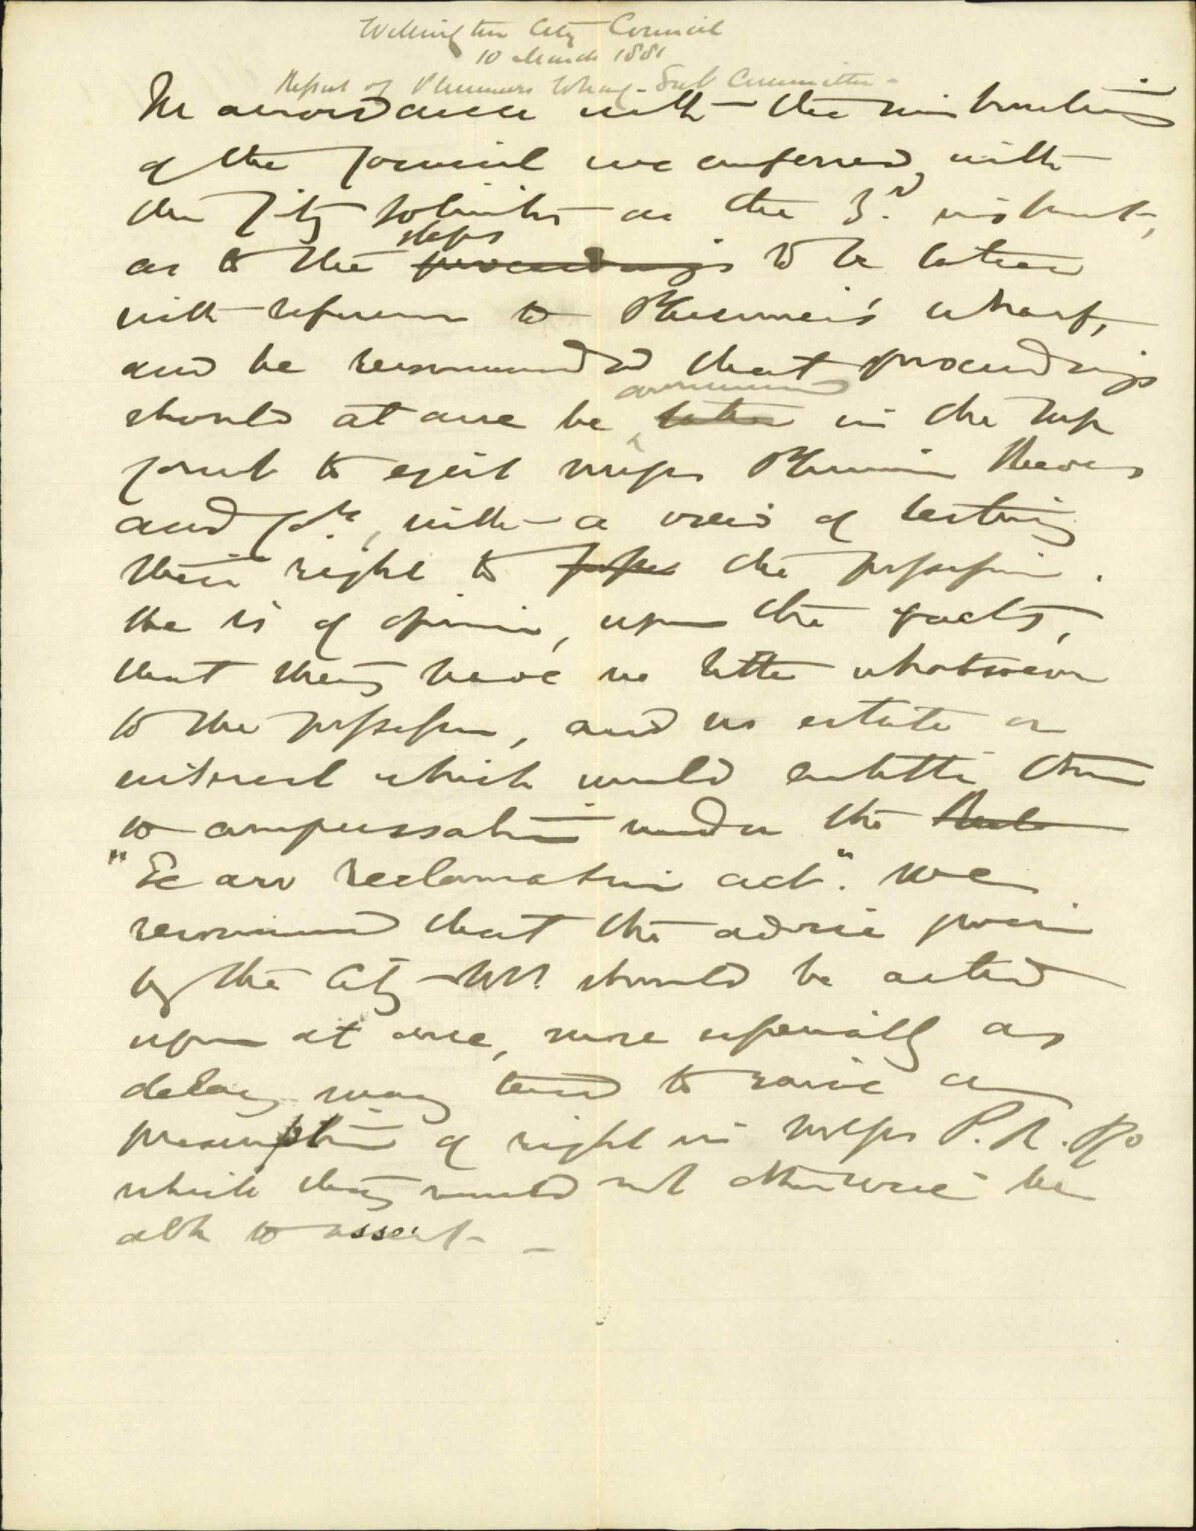 Wellington City Council
10 March 1881
Report of Plummers Wharf Sub Committee
In accordance with the instructions
of the Council we conferred with
the City Solicitor on the 3rd instant,
as to the steps proceedings to be taken
with reference to Plimmer's wharf,
and he recommended that proceedings
should at once be commenced taken in the Sup
Court to eject Messrs Plimmer Reeves
and Co, with a view of testing
their right to the possession.
He is of opinion, upon the facts,
that they have no title whatsoever
to the possession, and no estate or
interest which would entitle them
to compensation under the
"Te Aro Reclamation Act". We
recommend that the advice given
by the City Solr. should be acted
upon at once, more especially as
delay may tend to raise a
presumption of right in Messrs P. R. & Co
which they would not otherwise be
able to assert